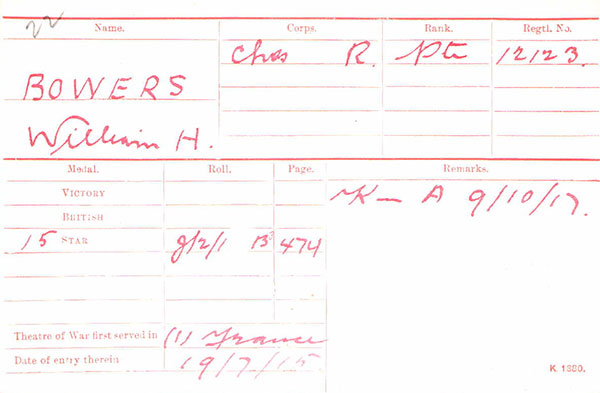 22
Name. Corps. Rank. Regtl. No.
Ches R. Pte 12123.
BOWERS
William H.
Medal. Roll. Page. Remarks.
VICTORY K— A 9/10/17.
BRITISH
15 STAR J/2/1 B3 474
Theatre of War first served in (1) France
Date of entry therein 19/7/15
K 1380.